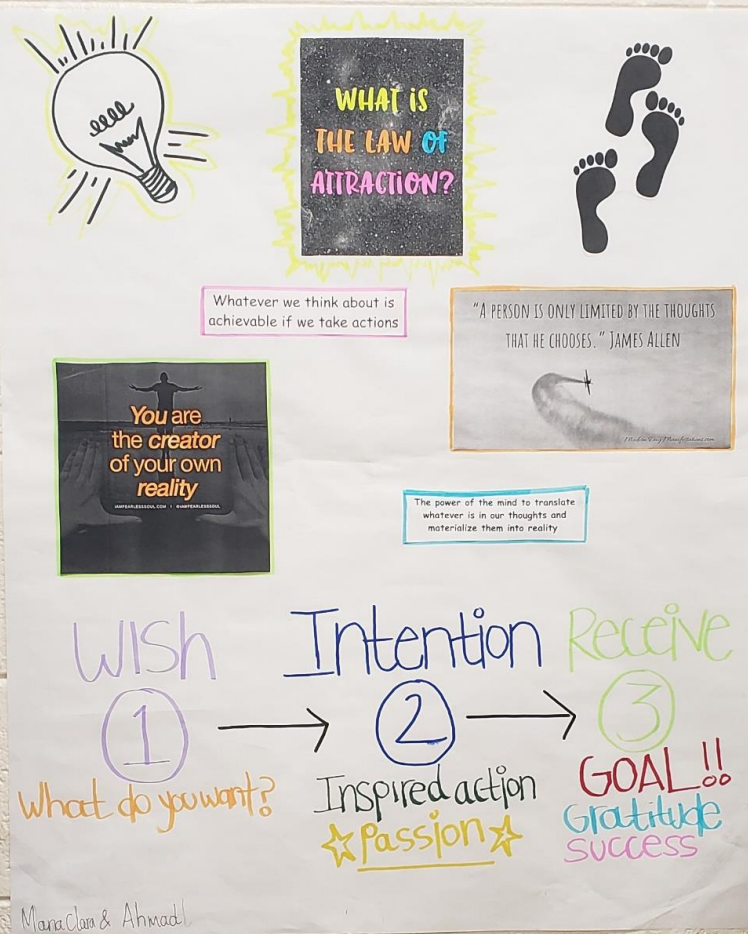 WHAT IS
THE LAW OF
ATTRACTION?
Whatever we think about is
achievable if we take actions
"A PERSON IS ONLY LIMITED BY THE THOUGHTS
THAT HE CHOOSES." JAMES ALLEN
You are
the creator
of your own
reality
IAMFEARLESSSOUL.COM | @IAMFEARLESSSOUL
The power of the mind to translate
whatever is in our thoughts and
materialize them into reality
WISH
Intention
Receive
1
2
3
What do you want?
Inspired action
Passion
GOAL!!
Gratitude
SUCCESS
Clara & Ahmad